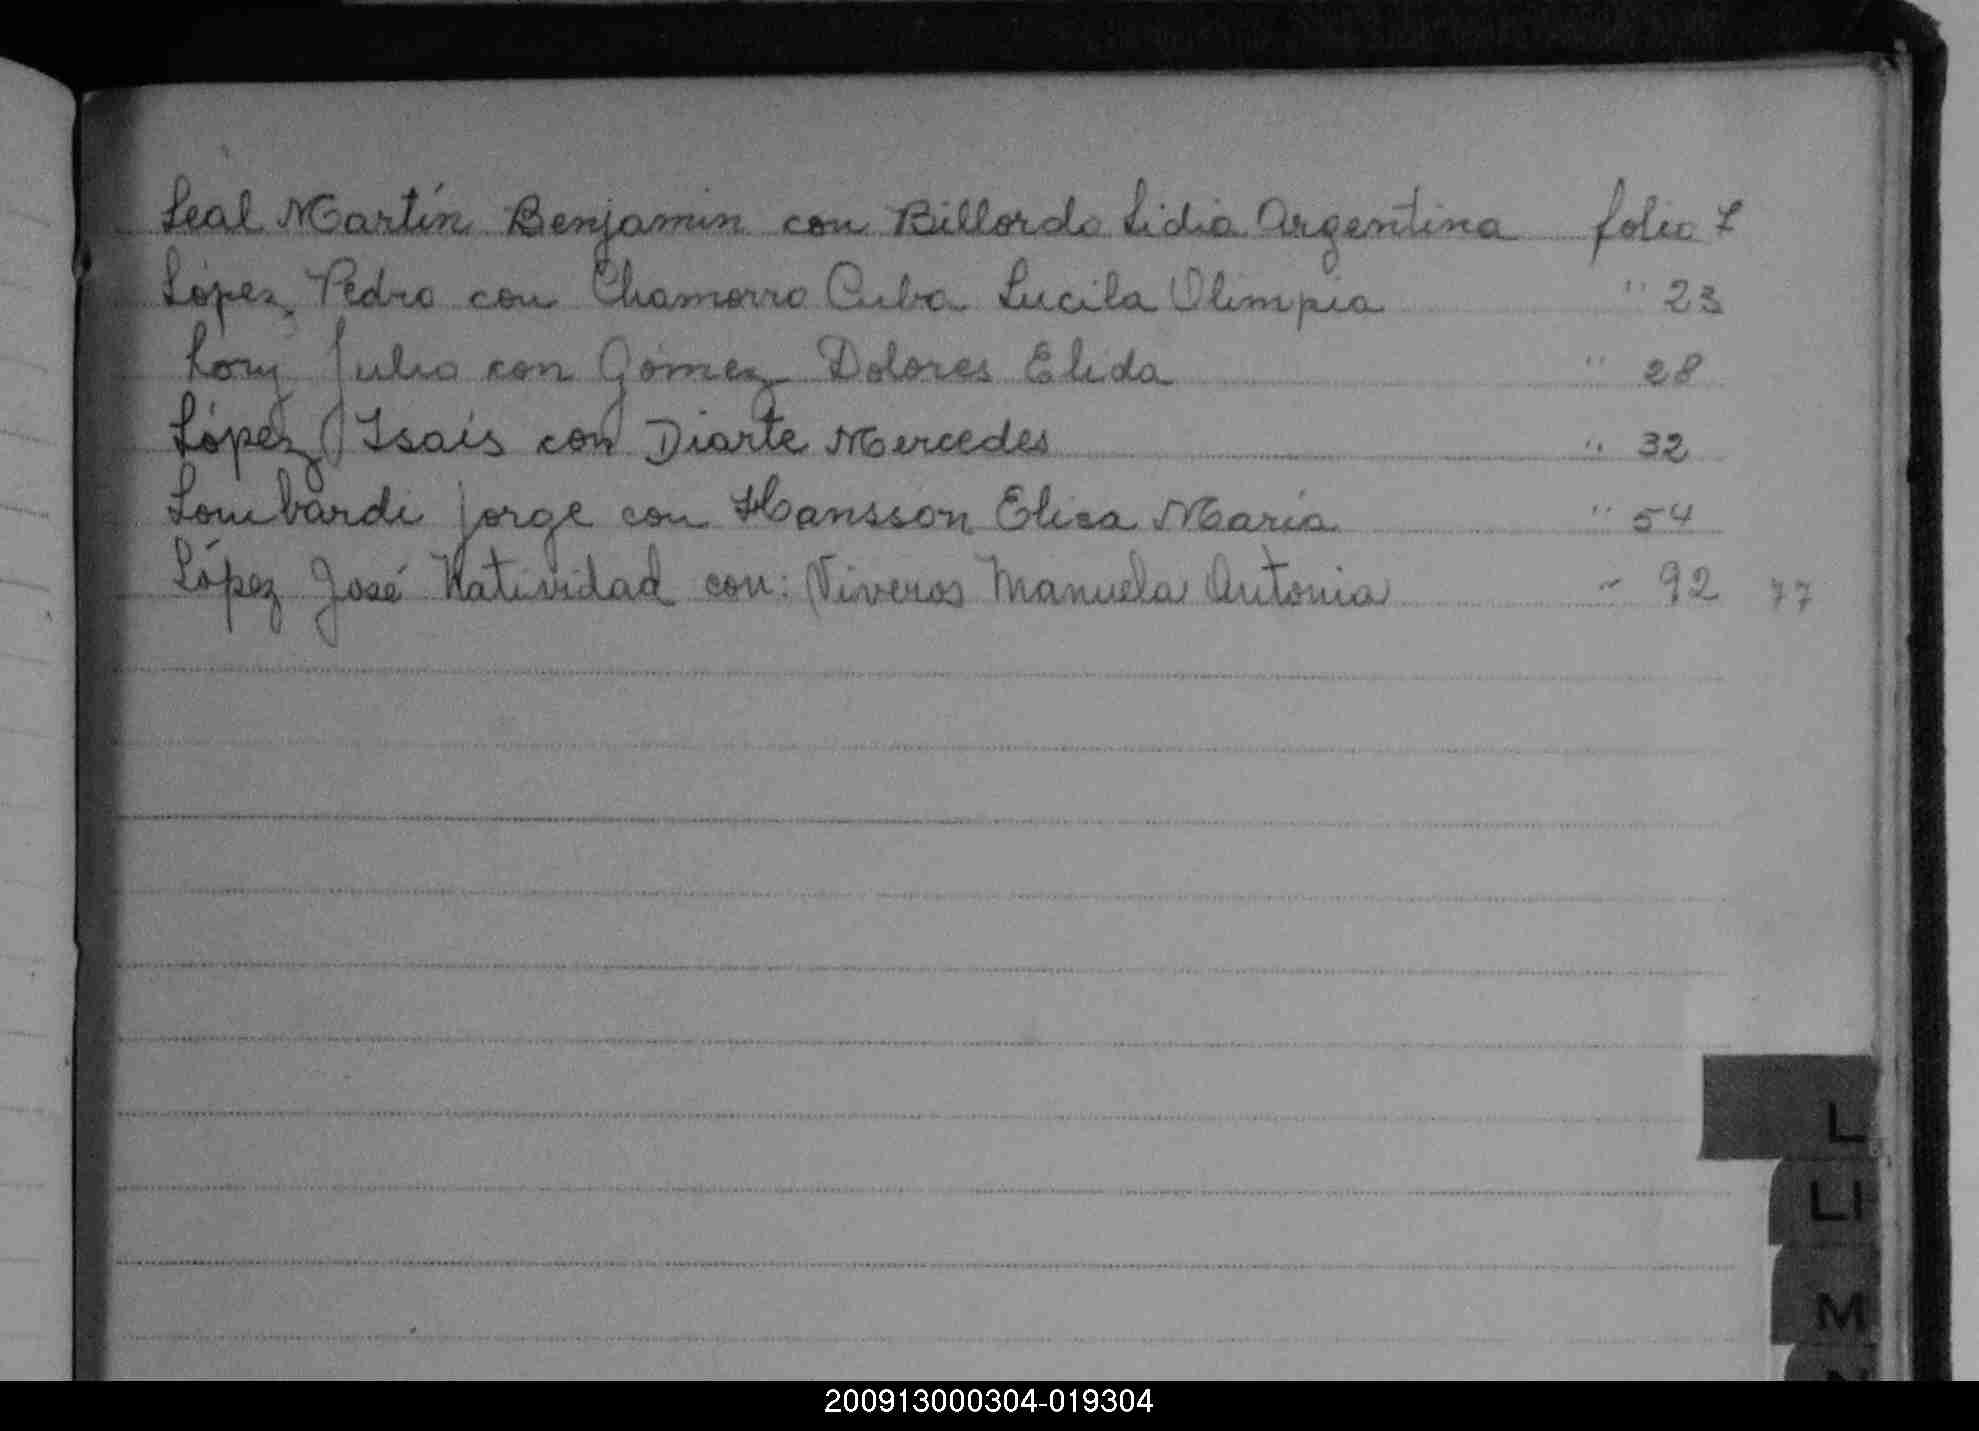 Leal Martín Benjamin con Billordo Lidia Argentina folio 7
López Pedro con Chamorro Cuba Lucila Olimpia " 23
Julio con Gómez Dolores Elida " 28
López Isaís con Diarte Mercedes " 32
Lombardi Jorge con Hansson Elisa María " 54
López José Natividad con: Viveros Manuela Antonia " 92 77
L
LI
M
200913000304-019304